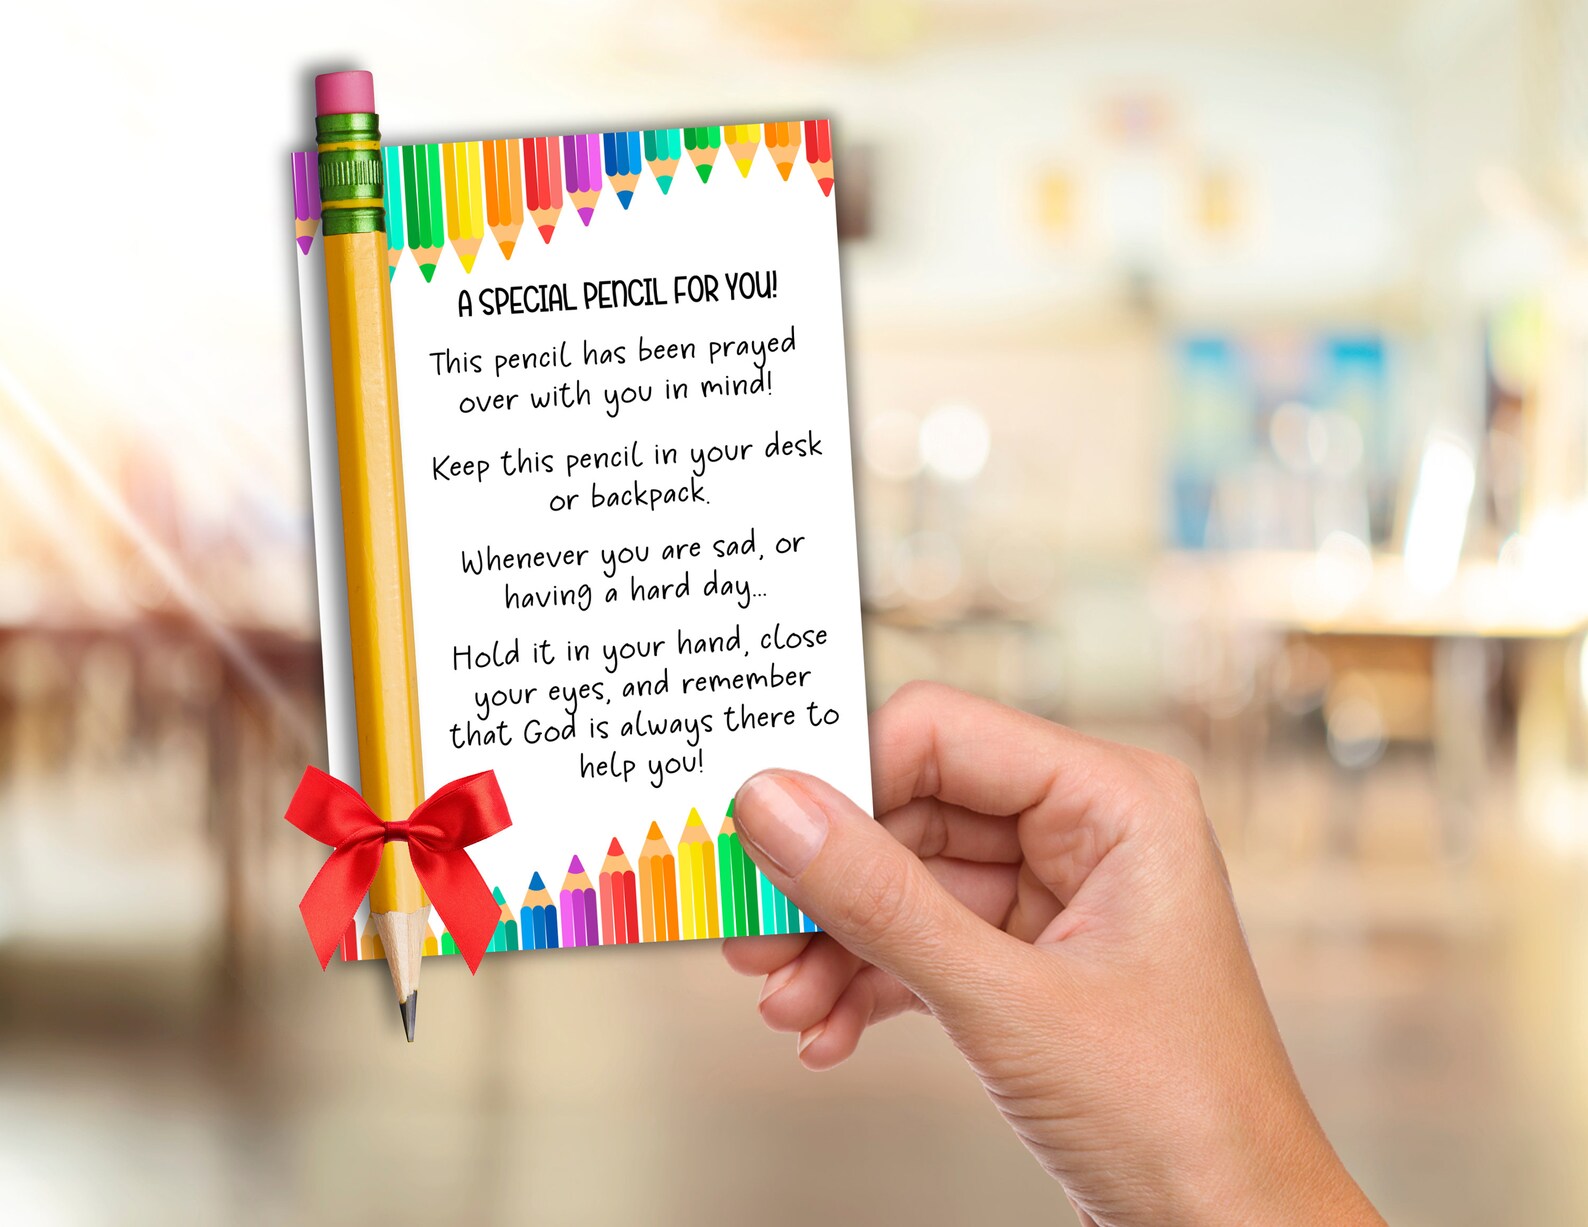 A SPECIAL PENCIL FOR YOU!
This pencil has been prayed
over with you in mind!
Keep this pencil in your desk
or backpack.
Whenever you are sad, or
having a hard day...
Hold it in your hand, close
your eyes, and remember
that God is always there to
help you!